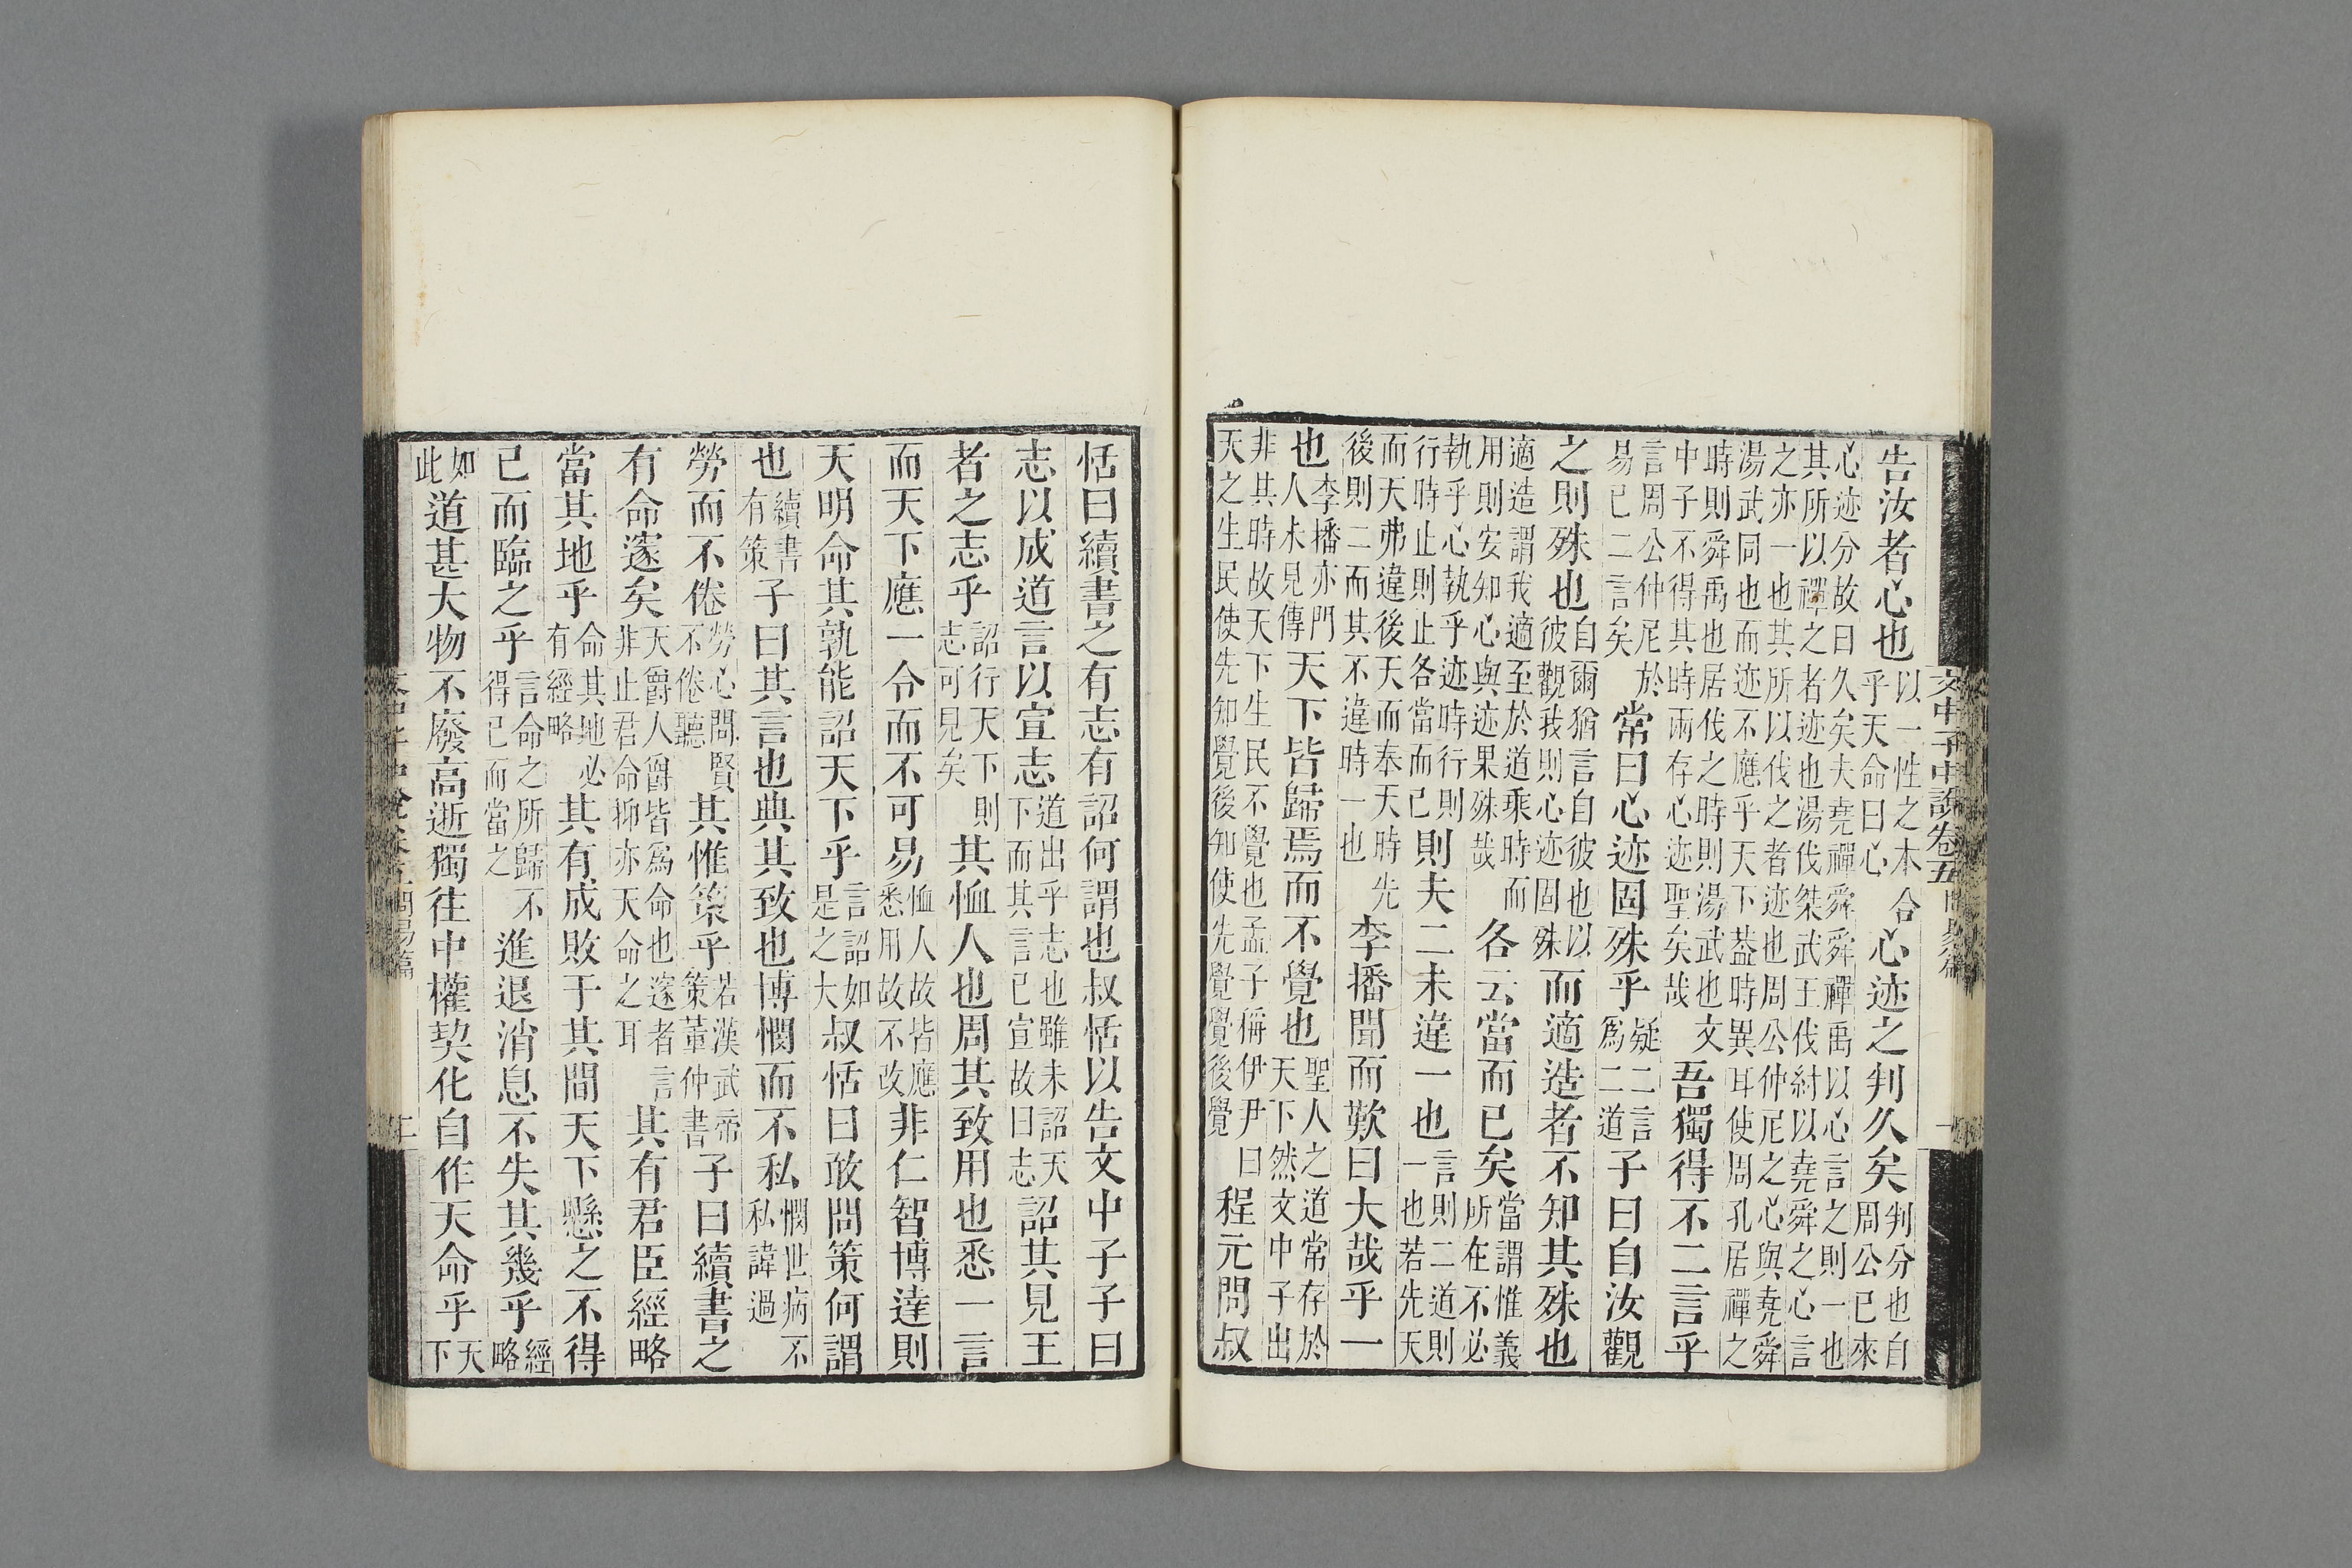 文中子中說卷五
告汝者心也以一性之本合乎天命曰心心迹之判久矣判分也自周公已來
心迹分故曰久矣夫堯禪舜舜禪禹以心言之則一也其所以禪之者迹也湯伐桀武王伐紂以堯舜之心言
之亦一也其所以伐之者迹也周公仲尼之心與堯舜湯武同也而迹不應乎天下葢時異耳使周孔居禪之
時則舜禹也居伐之時則湯武也文中子不得其時兩存心迹聖矣哉吾獨得不二言乎
言周公仲尼於易已二言矣常曰心迹固殊乎疑二言爲二道子曰自汝觀
之則殊也自爾猶言自彼也以彼觀我則心迹固殊而適造者不知其殊也
適造謂我適至於道乘時而用則安知心與迹果殊哉各云當而已矣當謂惟義所在不必
執乎心執乎迹時行則行時止則止各當而已則夫二未違一也言則二道則一也若先天
而天弗違後天而奉天時先後則二而其不違時一也李播聞而歎曰大哉乎一
也李播亦門人未見傳天下皆歸焉而不覺也聖人之道常存於天下然文中子出
非其時故天下生民不覺也孟子稱伊尹曰天之生民使先知覺後知使先覺覺後覺程元問叔
恬曰續書之有志有詔何謂也叔恬以告文中子子曰
志以成道言以宣志道出乎志也雖未詔天下而其言已宣故曰志詔其見王
者之志乎詔行天下則志可見矣其恤人也周其致用也悉一言
而天下應一令而不可易恤人故皆應悉用故不改非仁智博達則
天明命其孰能詔天下乎言詔如是之大叔恬曰敢問策何謂
也續書有策子曰其言也典其致也博憫而不私憫世病不私諱過
勞而不倦勞心問賢不倦聽其惟策乎若漢武帝策董仲書子曰續書之
有命邃矣天爵人爵皆爲命也邃者言非止君命抑亦天命之耳其有君臣經略
當其地乎命其地必有經略其有成敗于其間天下懸之不得
已而臨之乎言命之所歸不得已而當之進退消息不失其幾乎經略
如此道甚大物不廢高逝獨往中權契化自作天命乎天下